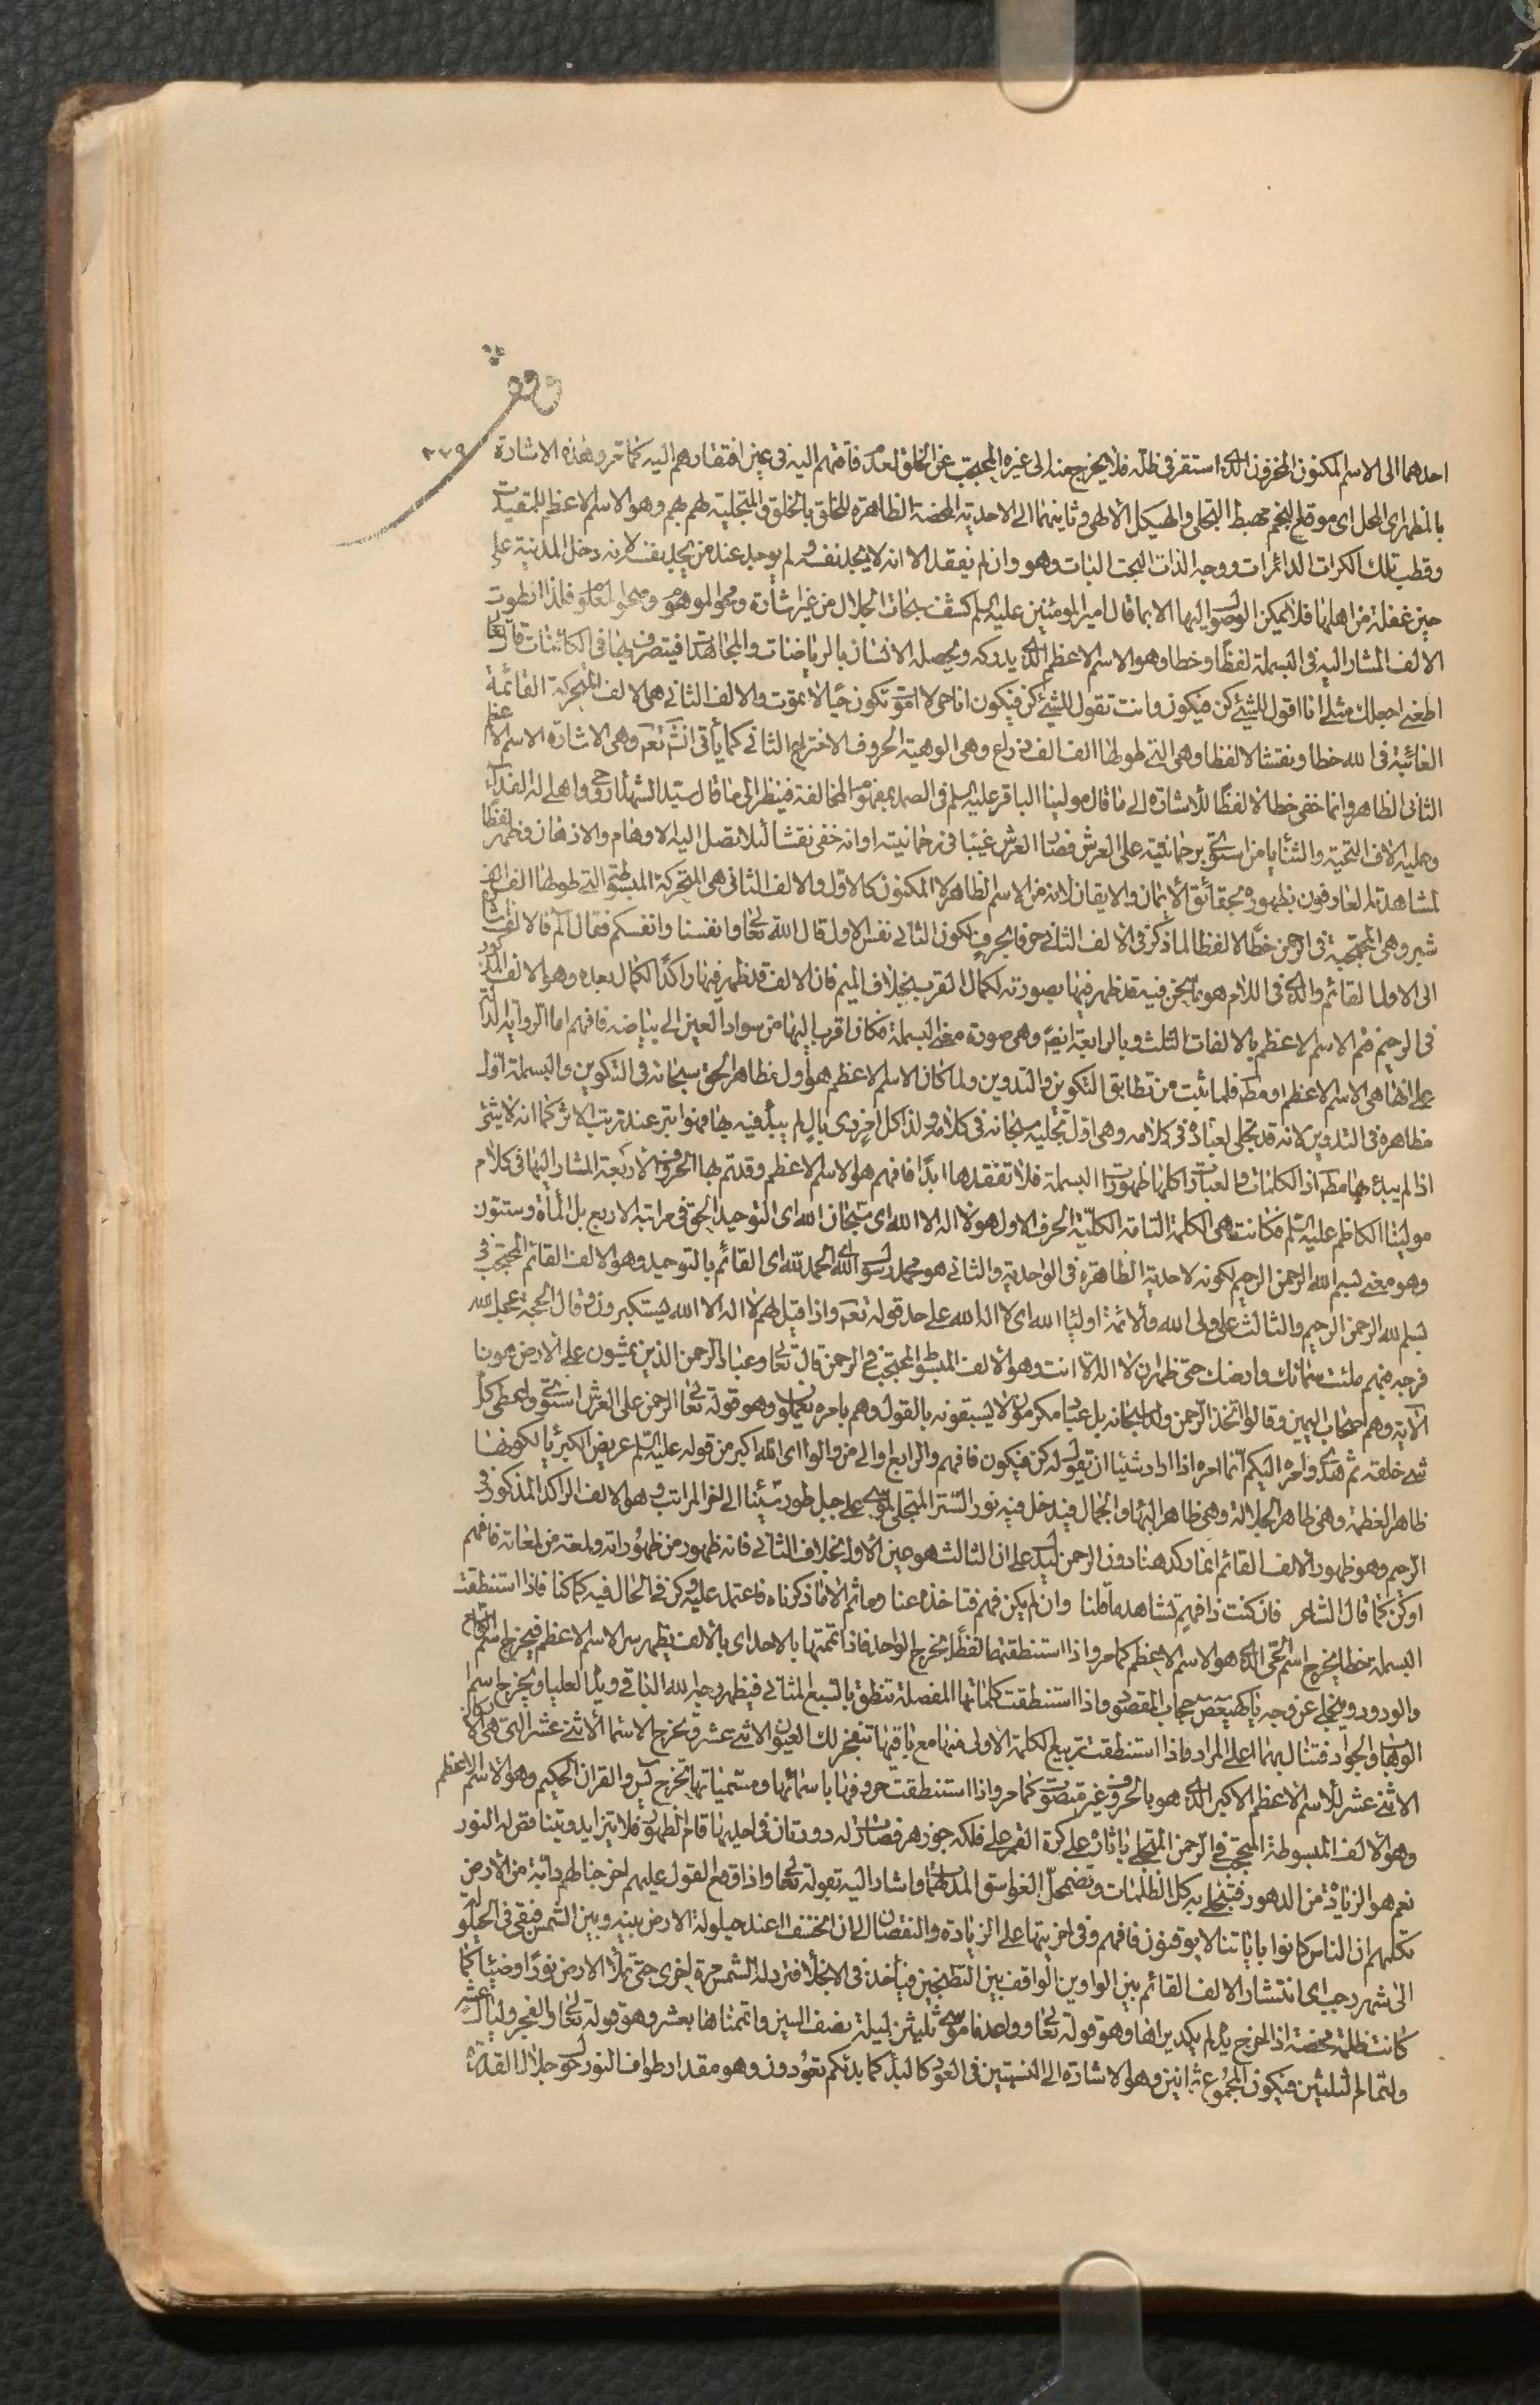 ٢٢٩
احدهما الى الاسم المكنون المخزون الذى استقر فى ظله فلا يخرج منه الى غيره المحتجب عن الخلق لعدم فاقتهم اليه فى عين افتقارهم اليه كما مر وهذه الاشارة
بالمظهر اى المحل اى موقع النجم مهبط التجلى والهيكل الالهى وثانيهما الى الاحدية المحضة الظاهرة للخلق بالخلق والمتجلية لهم بهم وهو الاسم الاعظم للمقيدين
وقطب تلك الكرات الدائرات ووجه الذات البحت البات وهو وان لم يفقد الا انه لا يجد نفسه ولم يوجد عند من يجد نفسه لانه دخل المدينة على
حين غفلة من اهلها فلا يمكن الوصول اليها الا بما قال امير المؤمنين عليه السلم كشف سبحات الجلال من غير اشارة ومحو الموهوم وصحو المعلوم فلذا انطوت
الالف المشار اليه فى البسملة لفظا وخطا وهو الاسم الاعظم الذى يدركه ويحصله الانسان بالرياضات والمجاهدات فيتصرف بها فى الكائنات قال تعالى
اطعنى اجعلك مثلى انا اقول للشئ كن فيكون وانت تقول للشئ كن فيكون انا حى لا اموت تكون حيا لا تموت والالف الثانى هى الالف المتحركة القائمة
الغائبة فى الله خطا ونقشا لا لفظا وهى التى طولها الف الف ذراع وهى الوهية الحروف الاختراع الثانى كما يأتى انش تعم وهى الاشارة الاسم الاعظم
الثانى الظاهر وانما خفى خطا لا لفظا للاشارة الى ما قال مولينا الباقر عليه السلم فى الصمد بمفهوم المخالفة فينظر الى ما قال سيد الشهداء روحى واهلى له الفداء
وعليه الاف التحية والثنا يا من استوى برحمانيته على العرش فصار العرش غيبا فى رحمانيته او انه خفى نقشا لئلا تصل اليه الاوهام والاذهان وظهر لفظا
لمشاهدة العارفون بظهوره بحقائق الايمان والايقان لانه من الاسم الظاهر لا المكنون كالاول والالف الثانى هى المتحركة المبسوطة التى طولها الف الف
شبر وهى المحتجبة فى الرحمن خطا لا لفظا لما ذكر فى الالف الثانى حرفا بحرف لكون الثانى نفس الاول قال الله تعالى وانفسنا وانفسكم فقال الم فالالف اشارة
الى الاول القائم والذى فى اللام هو ما نحن فيه قد ظهر فيها بصورته لكمال القرب بخلاف الميم فان الالف قد ظهر فيها راكدا لكمال بعده وهو الالف المذكور
فى الرحيم فتم الاسم الاعظم بالالفات الثلث وبالرابعة ايضا وهى صورة معنى البسملة فكان اقرب اليها من سواد العين الى بياضه فافهم اما الرواية الدالة
على انها هى الاسم الاعظم او مظهره فلما ثبت من تطابق التكوين والتدوين ولما كان الاسم الاعظم هو اول مظاهر الحق سبحانه فى التكوين والبسملة اول
مظاهره فى التدوين لانه قد تجلى لعباده فى كلامه وهى اول تجليه سبحانه فى كلامه ولذا كل امر ذى بال لم يبدأ فيه بها فهو ابتر عند ترتب الاثر كما انه لا يثمر
اذا لم يبدء بها مطلقا اذ الكلمات والعبارات كلها ظهورات البسملة فلا تفقدها ابدا فافهم هو الاسم الاعظم وقد تم بها الحروف الاربعة المشار اليها فى كلام
مولينا الكاظم عليه السلم فكانت هى الكلمة التامة الكلية الحرف الاول هو لا اله الا الله اى سبحان الله اى التوحيد الحق فى مراتبه الاربع بل المأة وستون
وهو معنى بسم الله الرحمن الرحيم لكونه لاحدية الظاهرة فى الواحدية والثانى هو محمد رسول الله اى الحمد لله اى القائم بالتوحيد وهو الالف القائم المحتجب فى
بسم الله الرحمن الرحيم والثالث على ولى الله والائمة اوليا الله اى لا اله الا الله على حد قوله تعم واذا قيل لهم لا اله الا الله يستكبرون وقال الحجة عجل الله
فرجه فبهم ملئت سمائك وارضك حتى ظهر ان لا اله الا انت وهو الالف المبسوط المحتجب فى الرحمن قال تعالى وعباد الرحمن الذين يمشون على الارض هونا
الاية وهم اصحاب اليمين وقالوا اتخذ الرحمن ولدا سبحانه بل عباد مكرمون لا يسبقونه بالقول وهم بامره يعملون وهو قوله تعالى الرحمن على العرش استوى واعطى كل
شئ خلقه ثم هدى وامره اليكم انما امره اذا اراد شيئا ان يقول له كن فيكون فافهم والرابع اوالى من والوا اى الله اكبر من قوله عليه السلم عريض الكبريا لكونها
ظاهر العظمة وهى ظاهر الجلالة وهى ظاهر البهاء والجمال فيدخل فيه نور الستر المتجلى لموسى على جبل طور سينا الى اخر المراتب وهو الالف الراكد المذكور فى
الرحيم وهو ظهور الالف القائم انما ركد هنا دون الرحمن ليدل على ان الثالث هو عين الاول بخلاف الثانى فانه ظهور من ظهوراته ولمعة من لمعاته فافهم
او كن كما قال الشاعر فان كنت ذا فهم تشاهد ما قلنا وان لم يكن فهم فتاخذه عنا وما ثم الا ما ذكرناه فاعتمد عليه وكن فى الحال فيه كما كنا فاذا استنطقت
البسملة خطا يخرج اسم الحى الذى هو الاسم الاعظم كما مر واذا استنطقتها لفظا يخرج الواحد فاذا تممتها بالاحد اى بالالف يظهر سر الاسم الاعظم فيخرج اسم
والودود وينجلى عن وجه يا كهيعص حجاب المقصود واذا استنطقت كلماتها المفصلة تنطق بالسبع المثانى فيظهر وجه الله الباقى ويد العليا ويخرج اسم
الوهاب والجواد فتنال بهما اعلى المراد فاذا استنطقت تربيع الكلمة الاولى منها مع باقيها تنفجر لك العيون الاثنى عشر ويخرج الاسماء الاثنى عشر التى هى الاركان
الاثنى عشر للاسم الاعظم الاكبر الذى هو بالحروف غير مصوت كما مر واذا استنطقت حروفها باسمائها ومسمياتها يخرج يس والقران الحكيم وهو الاسم الاعظم
وهو الالف المبسوطة المحتجب فى الرحمن المتجلى باثاره على كرة القمر على فلكه جوزهر فصارت له دورتان فى احديهما قائم الظهور فلا يتزايد ويتناقص له النور
نعم هو الزيادة من الدهور فينجلى به كل الظلمات وتضمحل الغواسق المدلهمات واشار اليه بقوله تعالى واذا وقع القول عليهم اخرجنا لهم دابة من الارض
تكلمهم ان الناس كانوا باياتنا لا يوقنون فافهم وفى اخريهما على الزيادة والنقصان الى ان انخسف عند حيلولة الارض بينه وبين الشمس فبقى فى الحيلولة
الى شهر رجب اى انتشار الالف القائم بين الواوين الواقف بين الطتنجين فياخذ فى الانجلاء فترد له الشمس مرة اخرى حتى يملأ الارض نورا وضياء كما
كانت ظلمة محضة اذا اخرج يده لم يكد يراها وهو قوله تعالى وواعدنا موسى ثلثين ليلة بضعف السين واتممناها بعشر وهو قوله تعالى والفجر وليال عشر
ولتمام الثلثين فيكون المجموع ثمانين وهو الاشارة الى النسبتين فى العود كالبدء كما بدئكم تعودون وهو مقدار طواف النور حول جلال القدرة